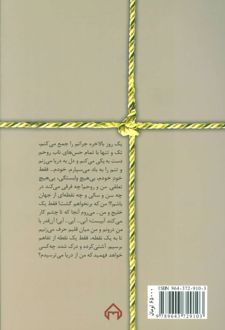 یک روز بالاخره جراتم را جمع می‌کنم،
تک و تنها با تمام حس‌های ناب روحم
دست به یکی می‌کنم و دل به دریا می‌زنم
و تنم را به باد می‌سپارم. خودم... فقط
خود خودم، بی‌هیچ وابستگی، بی‌هیچ
تعلقی. من و روحم! چه فرقی می‌کند در
چه سن و سالی و چه نقطه‌ای از جهان
باشم؟! من که برنخواهم گشت! فقط یک
خلیج و من. می‌روم آنجا که تا چشم کار
می‌کند آبیست... آبی... آبی! آن‌قدر با
من درونم و من میان قلبم حرف می‌زنم
تا به یک نقطه، فقط یک نقطه از تفاهم
برسیم. آشتی‌کرده و درک شده. چه‌کسی
خواهد فهمید که من از دریا می‌ترسیدم؟
ISBN 964-372-910-3
9 789643 729103
تومان